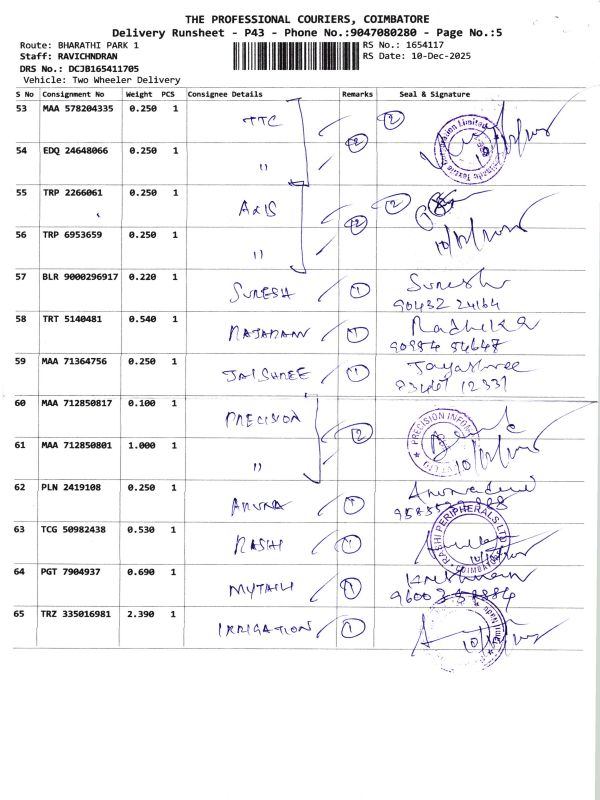 THE PROFESSIONAL COURIERS, COIMBATORE
Delivery Runsheet - P43 - Phone No.:9047080280 - Page No.:5
Route: BHARATHI PARK 1 RS No.: 1654117
Staff: RAVICHNDRAN RS Date: 10-Dec-2025
DRS No.: DCJB165411705
Vehicle: Two Wheeler Delivery
S No Consignment No Weight PCS Consignee Details Remarks Seal & Signature
53 MAA 578204335 0.250 1 TTC 2
54 EDQ 24648066 0.250 1 " 2
55 TRP 2266061 0.250 1 AXIS 2
56 TRP 6953659 0.250 1 " 2 10/12/2025
57 BLR 9000296917 0.220 1 SURESH 1 Suresh
90432 24164
58 TRT 5140481 0.540 1 RAJARAM 1 Radhika
90954 54647
59 MAA 71364756 0.250 1 JAISHREE 1 Jayashree
12331
60 MAA 712850817 0.100 1 PRECISION 2 PRECISION
61 MAA 712850801 1.000 1 "
62 PLN 2419108 0.250 1 ARUNA 1
63 TCG 50982438 0.530 1 RASHI 1 RASHI PERIPHERALS LTD. COIMBATORE
64 PGT 7904937 0.690 1 MYTHILI 1
65 TRZ 335016981 2.390 1 IRRIGATION 1